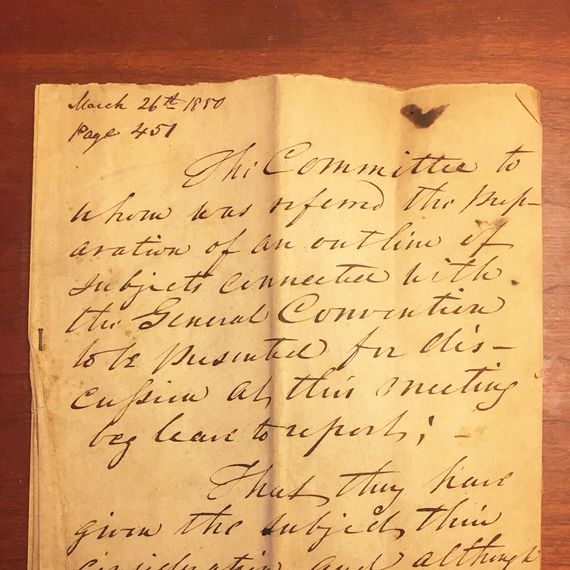 March 26th 1850
Page 451
The Committee to
whom was referred the Prep-
aration of an outline of
subjects connected with
the General Convention
to be presented for dis-
cussion at this meeting
beg leave to report; -
That they have
given the subject their
consideration and although